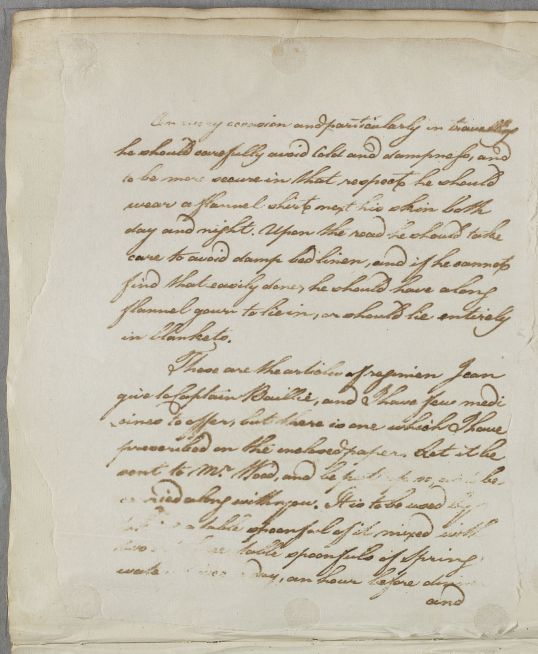 On every occasion and particularly in travelling
he should carefully avoid Cold and dampness, and
to be more secure in that respect he should
wear a flannel shirt next his skin both
day and night. Upon the road he should take
care to avoid damp bed linen, and if he cannot
find that easily done, he should have a long
flannel gown to lie in, or should lie entirely
in blankets.
These are the articles of regimen I can
give to Captain Baillie, and I have few medi
cines to offer, but there is one which I have
prescribed on the inclosed paper. Let it be
sent to Mr Wood, and be
carried along with you. It is to be used by
a table spoonful of it mixed with
two table spoonfuls of spring
water day, an hour before dinner
and